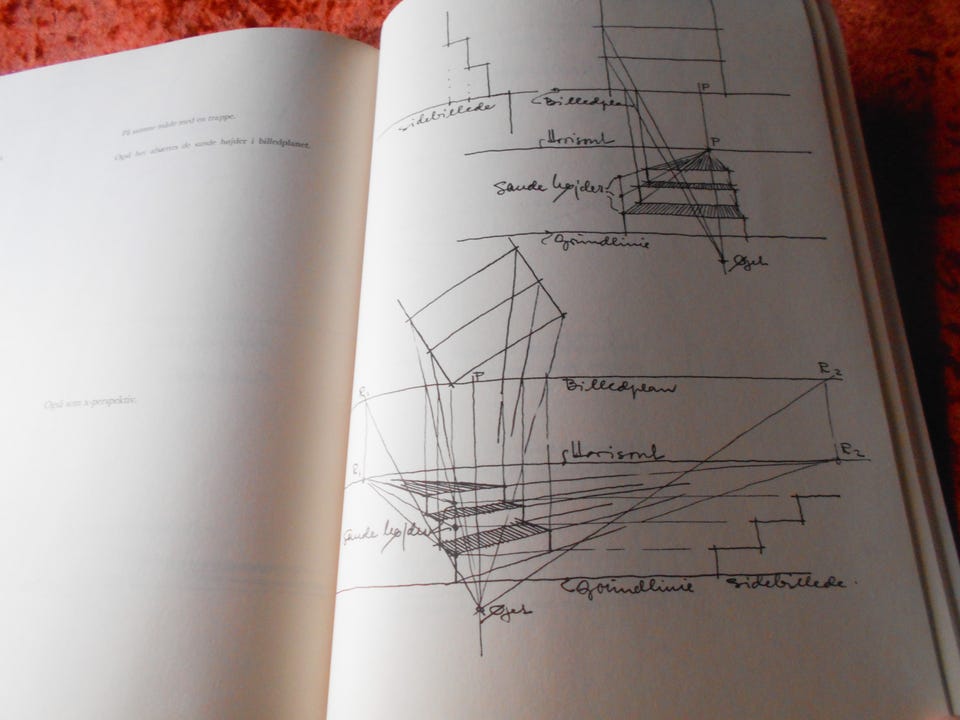 På samme måde med en trappe.
Også her afsættes de sande højder i billedplanet.
Også som x-perspektiv.
Sidebillede
Billedplan
P
Horisont
P
Sande højder
Grundlinie
Øjet
R1
P
Billedplan
R2
R1
Horisont
R2
Sande højder
Grundlinie
Sidebillede
Øjet